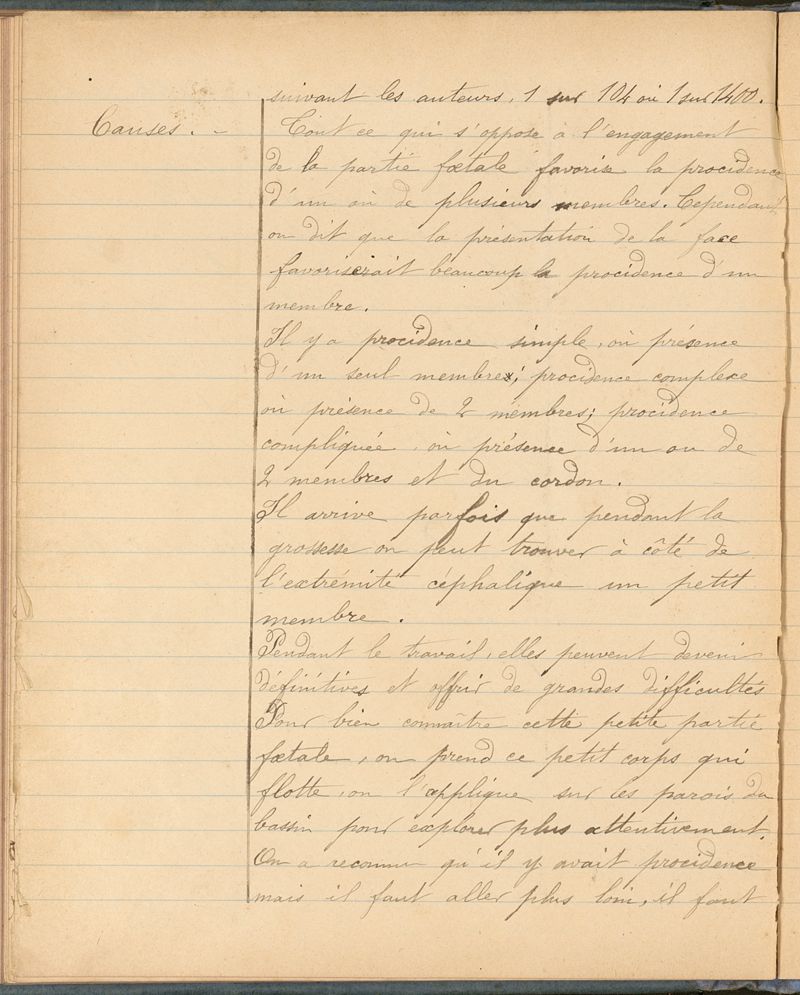 suivant les auteurs, 1 sur 104 où 1 sur 1400.
Causes. -
Tout ce qui s'oppose à l'engagement
de la partie fœtale favorise la procidence
d'un où de plusieurs membres. Cependant
on dit que la présentation de la face
favoriserait beaucoup la procidence d'un
membre.
Il y a procidence simple, où présence
d'un seul membre; procidence complexe
où présence de 2 membres; procidence
compliquée, où présence d'un ou de
2 membres et du cordon.
Il arrive parfois que pendant la
grossesse on peut trouver à côté de
l'extrémité céphalique un petit
membre.
Pendant le travail, elles peuvent devenir
définitives et offrir de grandes difficultés
Pour bien connaître cette petite partie
fœtale, on prend ce petit corps qui
flotte, on l'applique sur les parois du
bassin pour explorer plus attentivement.
On a reconnu qu'il y avait procidence
mais il faut aller plus loin, il faut